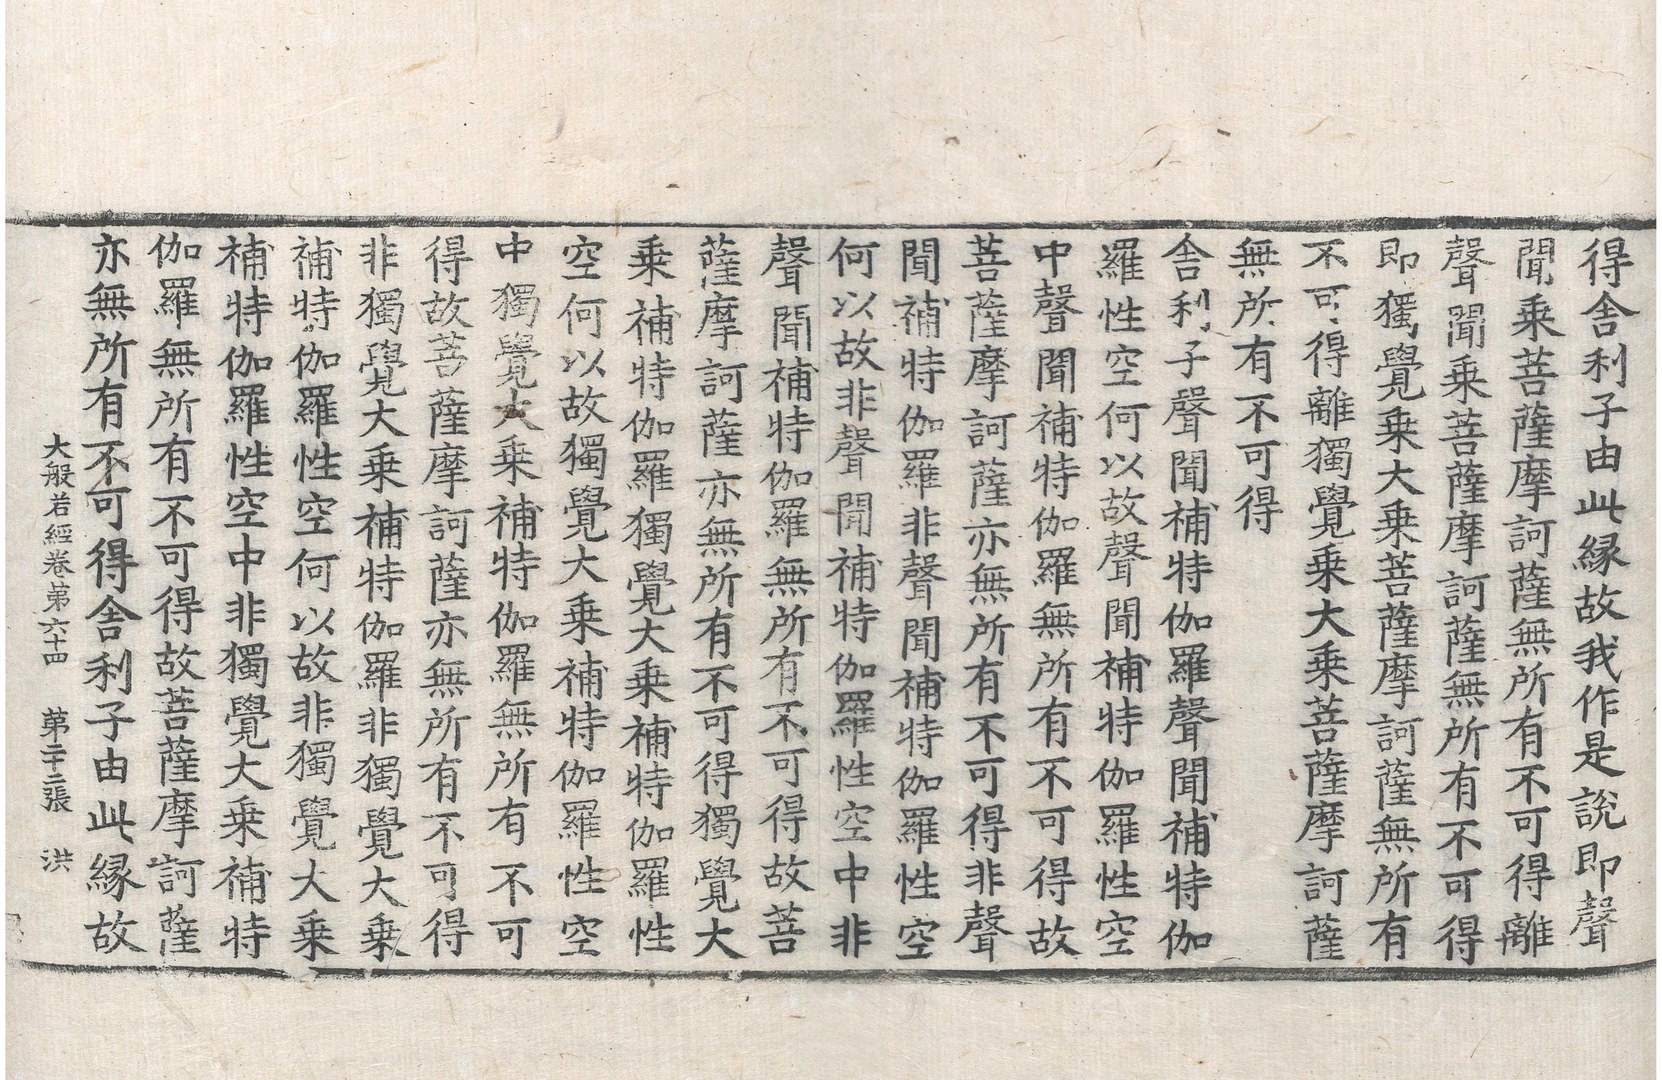 得舍利子由此縁故我作是說即聲
聞乗菩薩摩訶薩無所有不可得離
聲聞乗菩薩摩訶薩無所有不可得
即獨覺乗大乗菩薩摩訶薩無所有
不可得離獨覺乗大乗菩薩摩訶薩
無所有不可得
舍利子聲聞補特伽羅聲聞補特伽
羅性空何以故聲聞補特伽羅性空
中聲聞補特伽羅無所有不可得故
菩薩摩訶薩亦無所有不可得非聲
聞補特伽羅非聲聞補特伽羅性空
何以故非聲聞補特伽羅性空中非
聲聞補特伽羅無所有不可得故菩
薩摩訶薩亦無所有不可得獨覺大
乗補特伽羅獨覺大乗補特伽羅性
空何以故獨覺大乗補特伽羅性空
中獨覺大乗補特伽羅無所有不可
得故菩薩摩訶薩亦無所有不可得
非獨覺大乗補特伽羅非獨覺大乗
補特伽羅性空何以故非獨覺大乗
補特伽羅性空中非獨覺大乗補特
伽羅無所有不可得故菩薩摩訶薩
亦無所有不可得舍利子由此縁故
大般若經卷第六十四 第二十二張 洪